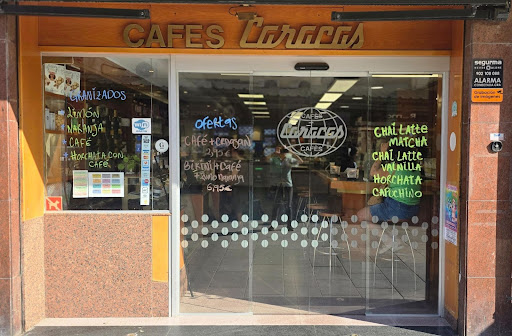 CAFES Caracas
GRANIZADOS
LIMÓN
NARANJA
CAFÉ
HORCHATA CON
CAFÉ
OFERTAS
CAFÉ + 
BIKINI + CAFÉ
CAFES
Caracas
CAFES
CHAI LATTE
MATCHA
CHAI LATTE
VAINILLA
HORCHATA
CAPUCHINO
segurma
902 108 088
ALARMA